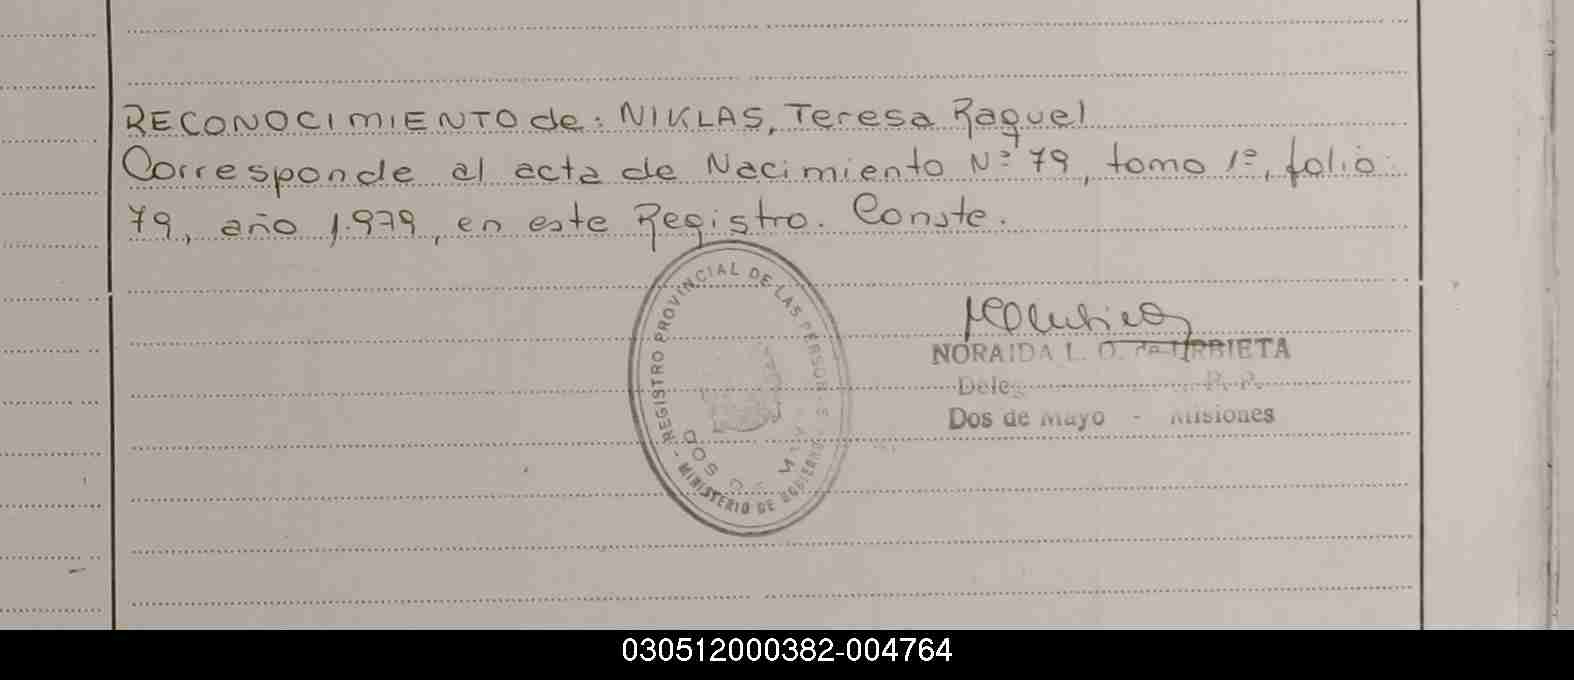 RECONOCIMIENTO de: NIKLAS, Teresa Raquel
Corresponde al acta de Nacimiento Nº 79, tomo 1º, folio
79, año 1.979, en este Registro. Conste.
REGISTRO PROVINCIAL DE LAS PERSONAS
- MINISTERIO DE GOBIERNO
DOS DE MAYO
NORAIDA L. O. de URBIETA
Dos de Mayo - Misiones
030512000382-004764